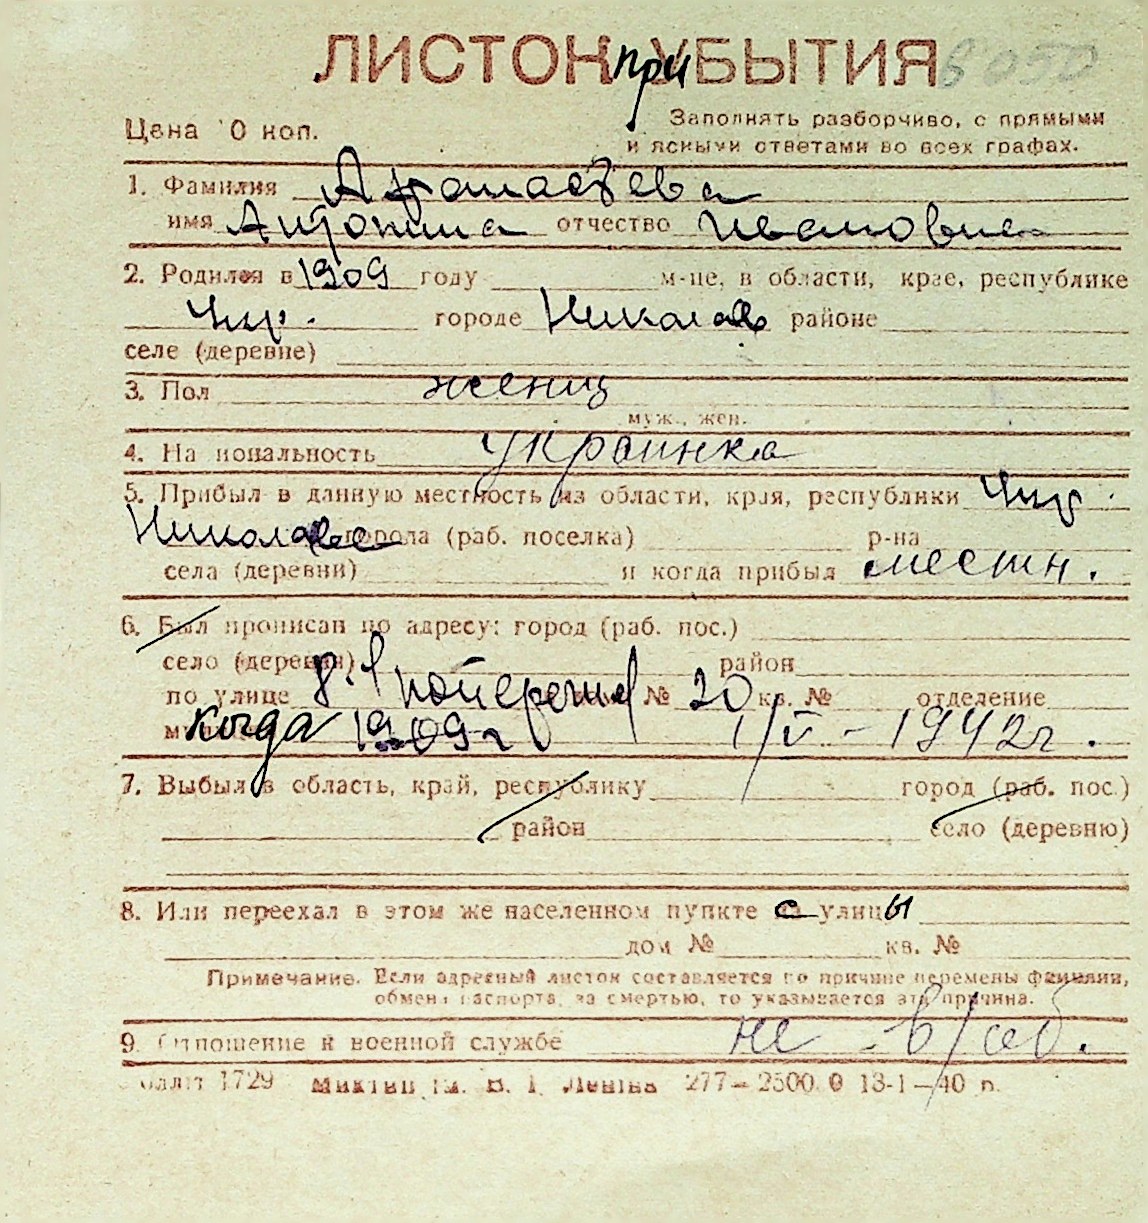 ЛИСТОК при УБЫТИЯ
Цена 10 коп.
Заполнять разборчиво, с прямыми
и ясными ответами во всех графах.
1. Фамилия Афанасьева
имя Антонина отчество Ивановна
2. Родился в 1909 году м-це, в области, крае, республике
Укр. городе Николаев районе
селе (деревне)
3. Пол женщ
муж., жен.
4. Национальность Украинка
5. Прибыл в данную местность из области, края, республики Укр.
Николаев города (раб. поселка) р-на
села (деревни) и когда прибыл местн.
6. Был прописан по адресу: город (раб. пос.)
село (деревня) район
по улице № 20 кв. № отделение
когда 1909г 1/V - 1942г.
7. Выбыл в область, край, республику город (раб. пос.)
район село (деревню)
8. Или переехал в этом же населенном пункте с улицы
дом № кв. №
Примечание. Если адресный листок составляется по причине перемены фамилии,
обмена паспорта, за смертью, то указывается эта причина.
9. Отношение к военной службе не в/об.
1729 277—2500 0 13-1—40 р.